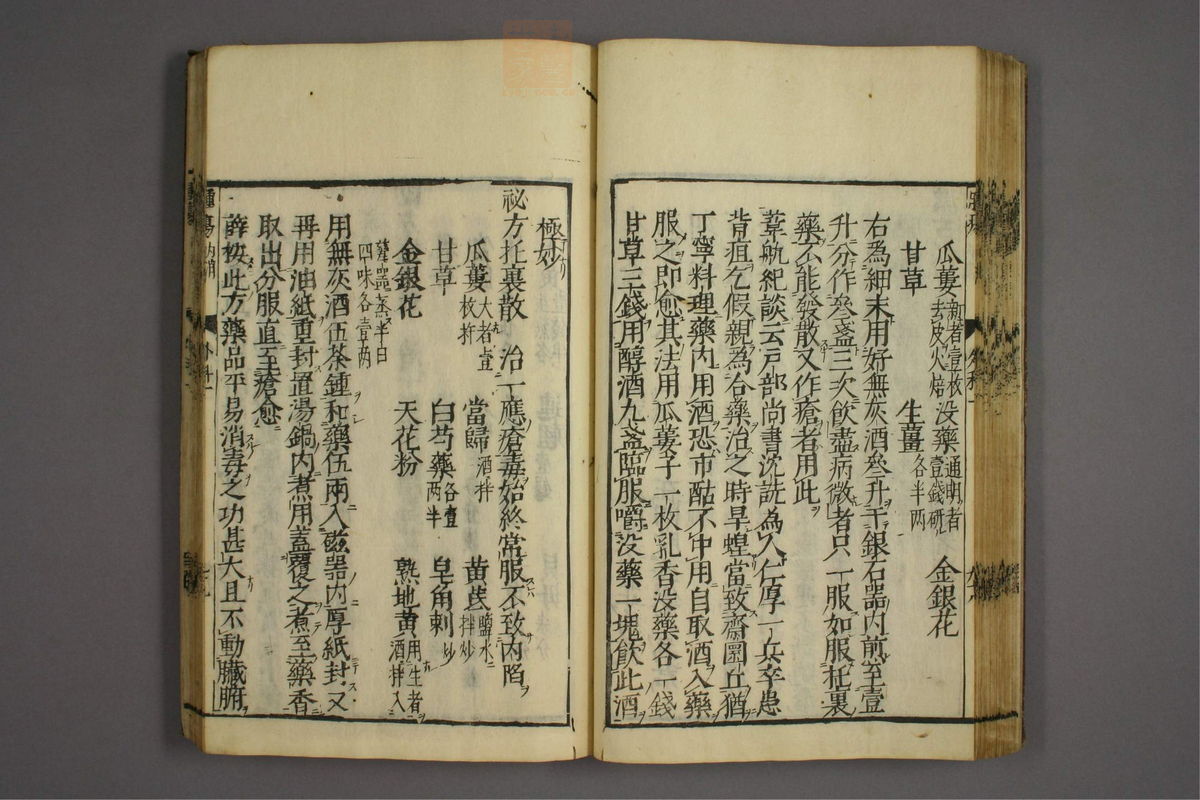 瓜蔞新者壹枚去皮火焙 没藥通明者壹錢研 金銀花
甘草 生薑各半两
右爲細末用好無灰酒叄升于銀石器内煎至壹
升分作叄盞三次飲盡病微者只一服如服托裏
藥不能發散又作瘡者用此
葦航紀談云戸部尚書沈詵為人仁厚一兵卒患
背疽乞假親為合藥治之時早蝗當致齋圜丘猶
丁寧料理藥内用酒恐市酤不中用自取酒入藥
服之即愈其法用瓜蔞子一枚乳香没藥各一錢
甘草三錢用醇酒九盞臨服嚼没藥一塊飲此酒
極妙
祕方托裏散 治一應瘡毒始終常服不致内陷
瓜蔞大者壹枚杵 當歸酒拌 黄芪鹽水拌炒
甘草 白芍藥各壹两半 皂角刺炒
金銀花 天花粉 熟地黄用生者酒拌入
蒸半日四味各壹两
用無灰酒伍茶鍾和藥伍兩入磁器内厚紙封又
再用油紙重封置湯鍋内煮用蓋覆之煮至藥香
取出分服直至瘡愈
薛按此方藥品平易消毒之功甚大且不動臓腑